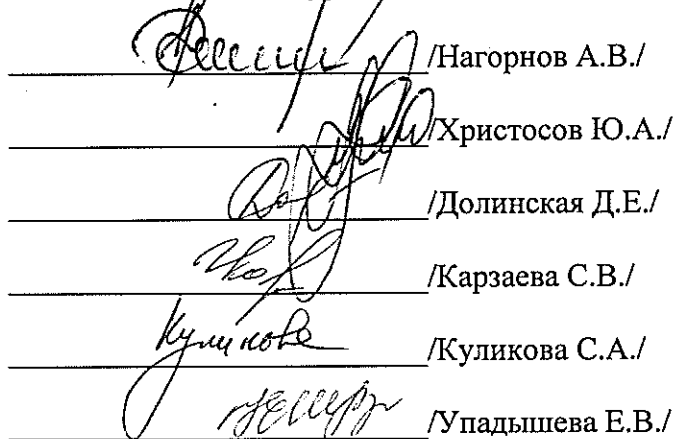 /Нагорнов А.В./
/Христосов Ю.А./
/Долинская Д.Е./
/Карзаева С.В./
Куликова /Куликова С.А./
/Упадышева Е.В./